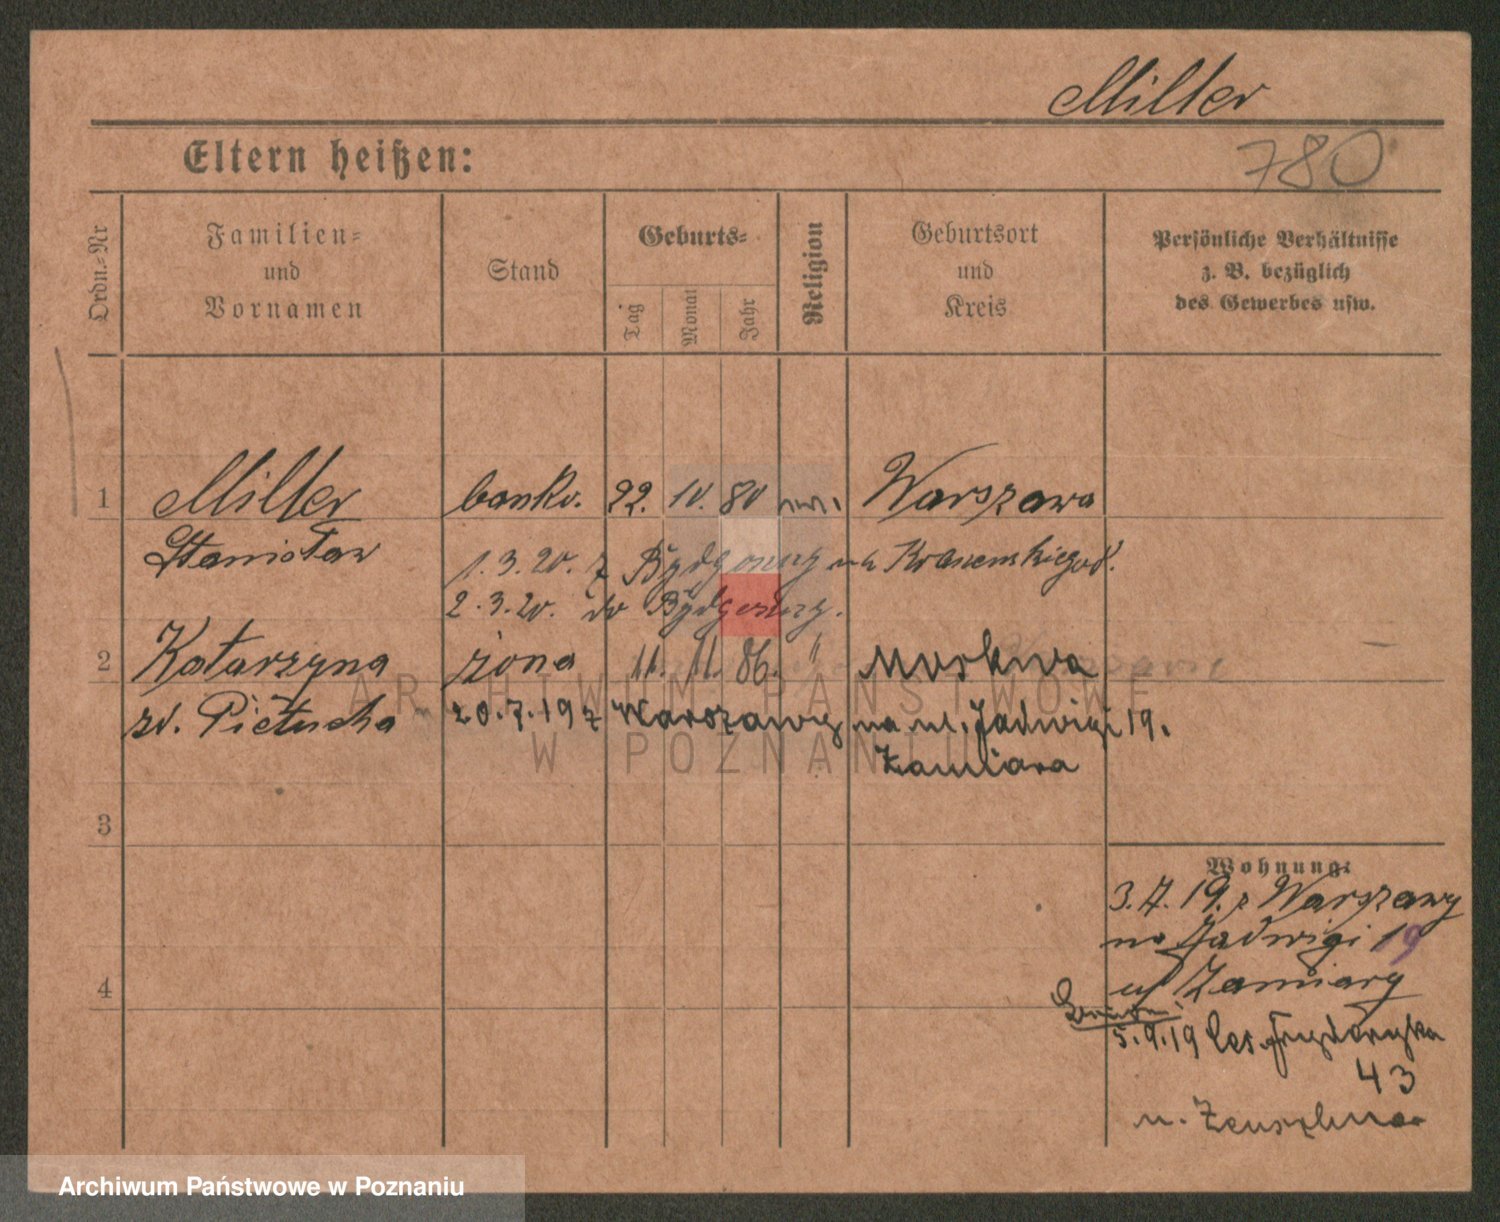 Miller
780
Eltern heißen:
Ordn.=Nr
Familien=
und
Vornamen
Stand
Geburts=
Tag
Monat
Jahr
Religion
Geburtsort
und
Kreis
Persönliche Verhältnisse
z. B. bezüglich
des Gewerbes usw.
1 Miller bankv. 22. 10. 80 Warszawa
Stanisław
1.3.20. z Bydgoszczy
2.3.20. do Bydgoszczy.
2 Katarzyna żona 11. 11. 86. " Moskwa
zd. Pietucha 20.7.19 z Warszawy na ul. Jadwigi 19.
3
4
Wohnung:
3.7.19. z Warszawy
na Jadwigi 19
5.9.19 Ces. Fryderyka
43
ARCHIWUM PAŃSTWOWE
W POZNANIU
Archiwum Państwowe w Poznaniu